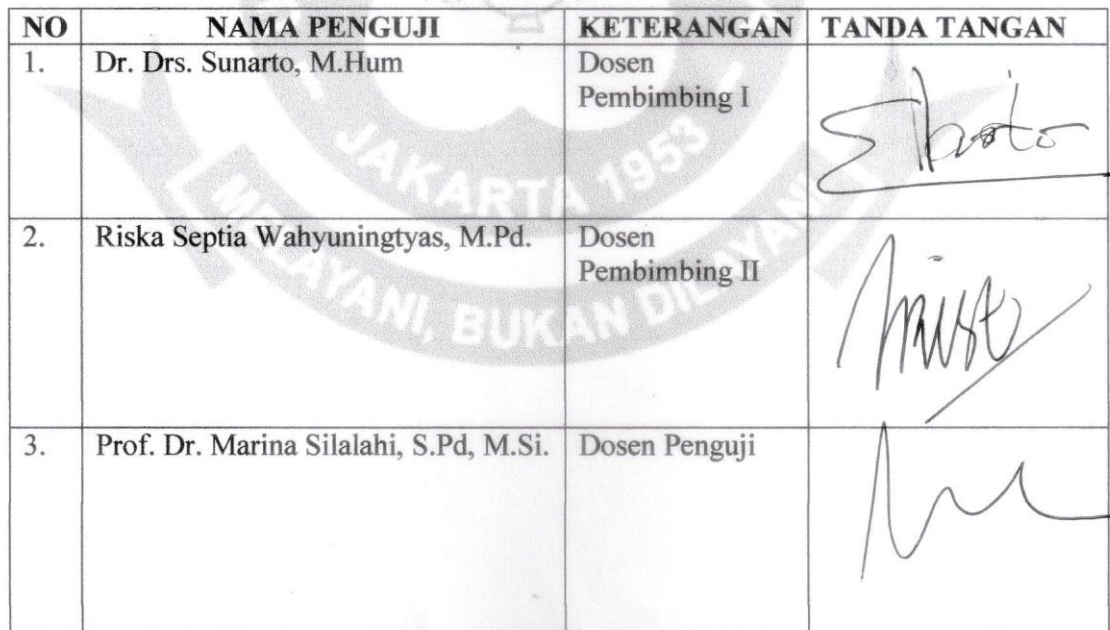 NO NAMA PENGUJI KETERANGAN TANDA TANGAN
1. Dr. Drs. Sunarto, M.Hum Dosen
Pembimbing I
2. Riska Septia Wahyuningtyas, M.Pd. Dosen
Pembimbing II
3. Prof. Dr. Marina Silalahi, S.Pd, M.Si. Dosen Penguji
JAKARTA 1953
MELAYANI, BUKAN DILAYANI